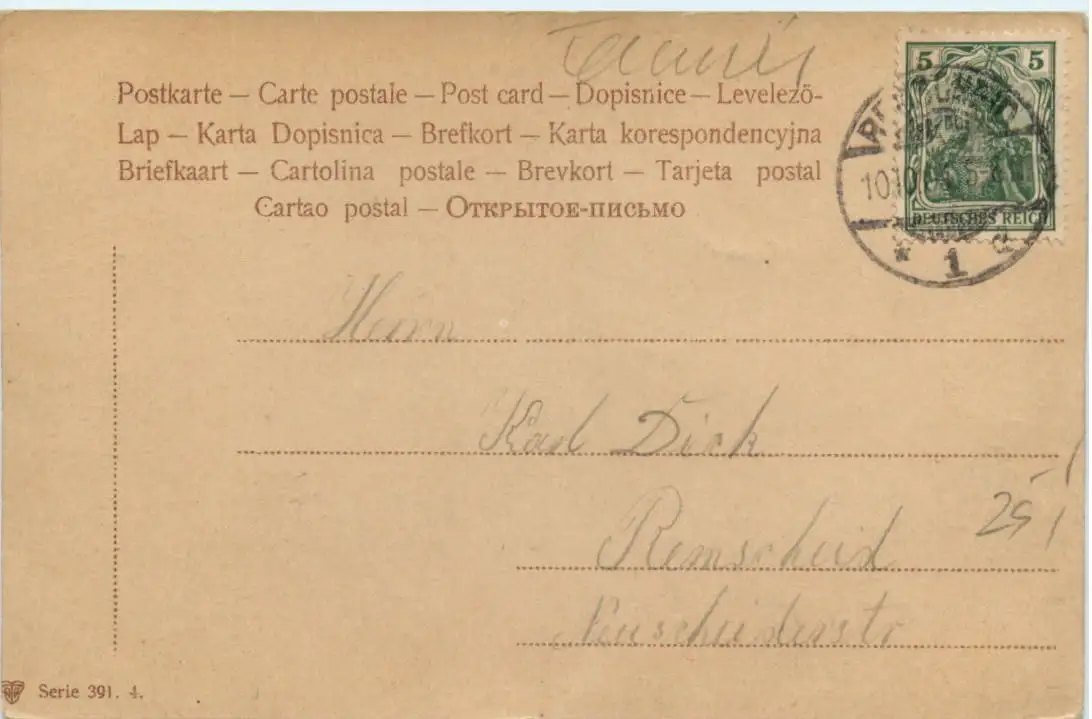 Postkarte — Carte postale — Post card — Dopisnice — Levelező-
Lap — Karta Dopisnica — Brefkort — Karta korespondencyjna
Briefkaart — Cartolina postale — Brevkort — Tarjeta postal
Cartao postal — Открытое-письмо
5 5
DEUTSCHES REICH
* 1
Herrn
Karl Dick
Remscheid
25
Serie 391. 4.